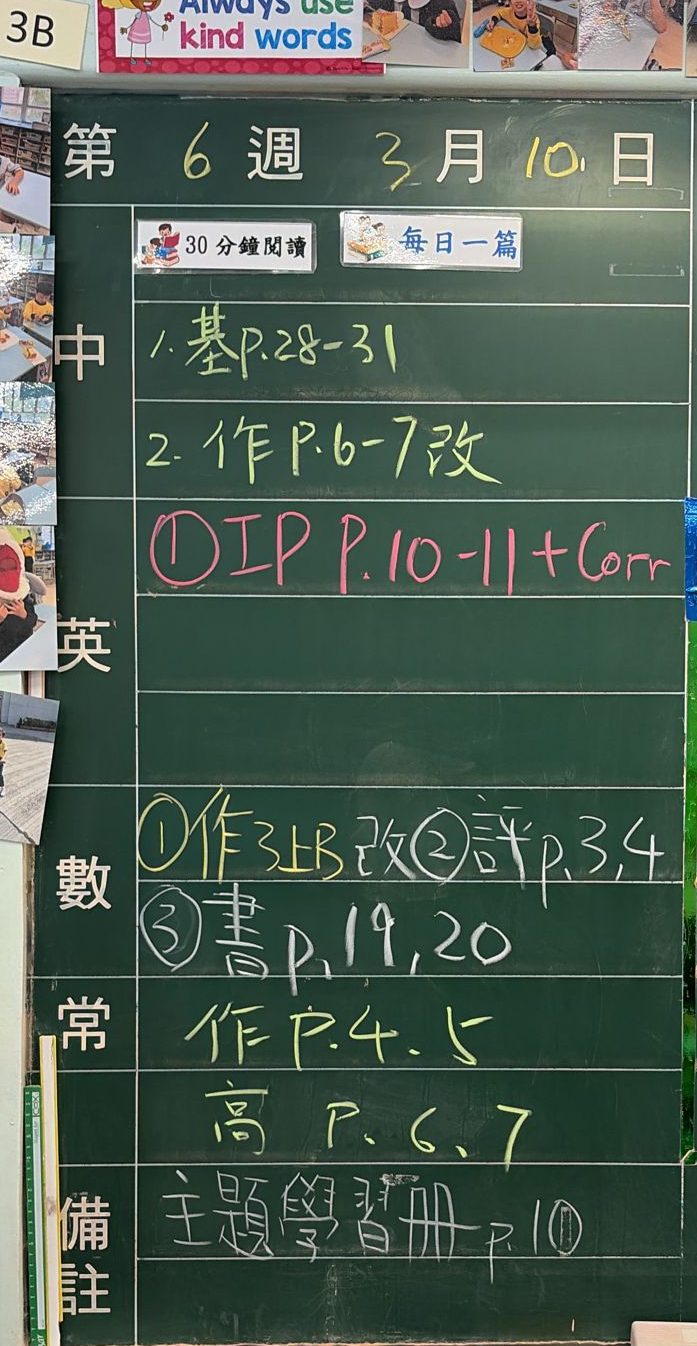 3B
Always use
kind words
第 6 週 3 月 10 日
30分鐘閱讀 每日一篇
中
1. 基P.28-31
2. 作 P.6-7改
英
①IP P.10-11+Corr
數
①作3上B 改②評p.3,4
③書p.19,20
常
作 P.4、5
高 P.6、7
備註
主題學習冊 p.10